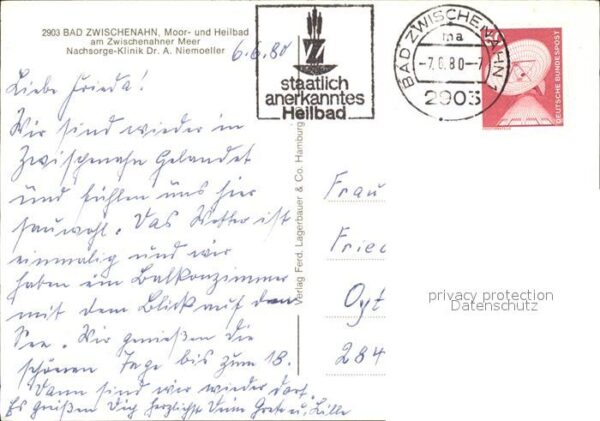 2903 BAD ZWISCHENAHN, Moor- und Heilbad
am Zwischenahner Meer
Nachsorge-Klinik Dr. A. Niemoeller
6.6.80
Liebe Frieda!
Wir sind wieder in
Zwischenahn Gelandet
und fühlen uns hier
sauwohl. Das Wetter ist
einmalig und wir
haben ein Balkonzimmer
mit dem Blick auf den
See. Wir genießen die
schönen Tage bis zum 18.
Dann sind wir wieder dort.
Es grüßen Dich herzlichst Deine Grete u. Lille
Verlag Ferd. Lagerbauer & Co. Hamburg
Z
staatlich
anerkanntes
Heilbad
BAD ZWISCHENAHN 1
ma
-7.6.80-7
2903
DEUTSCHE BUNDESPOST
Frau
Fried
Oyt
284
privacy protection
Datenschutz